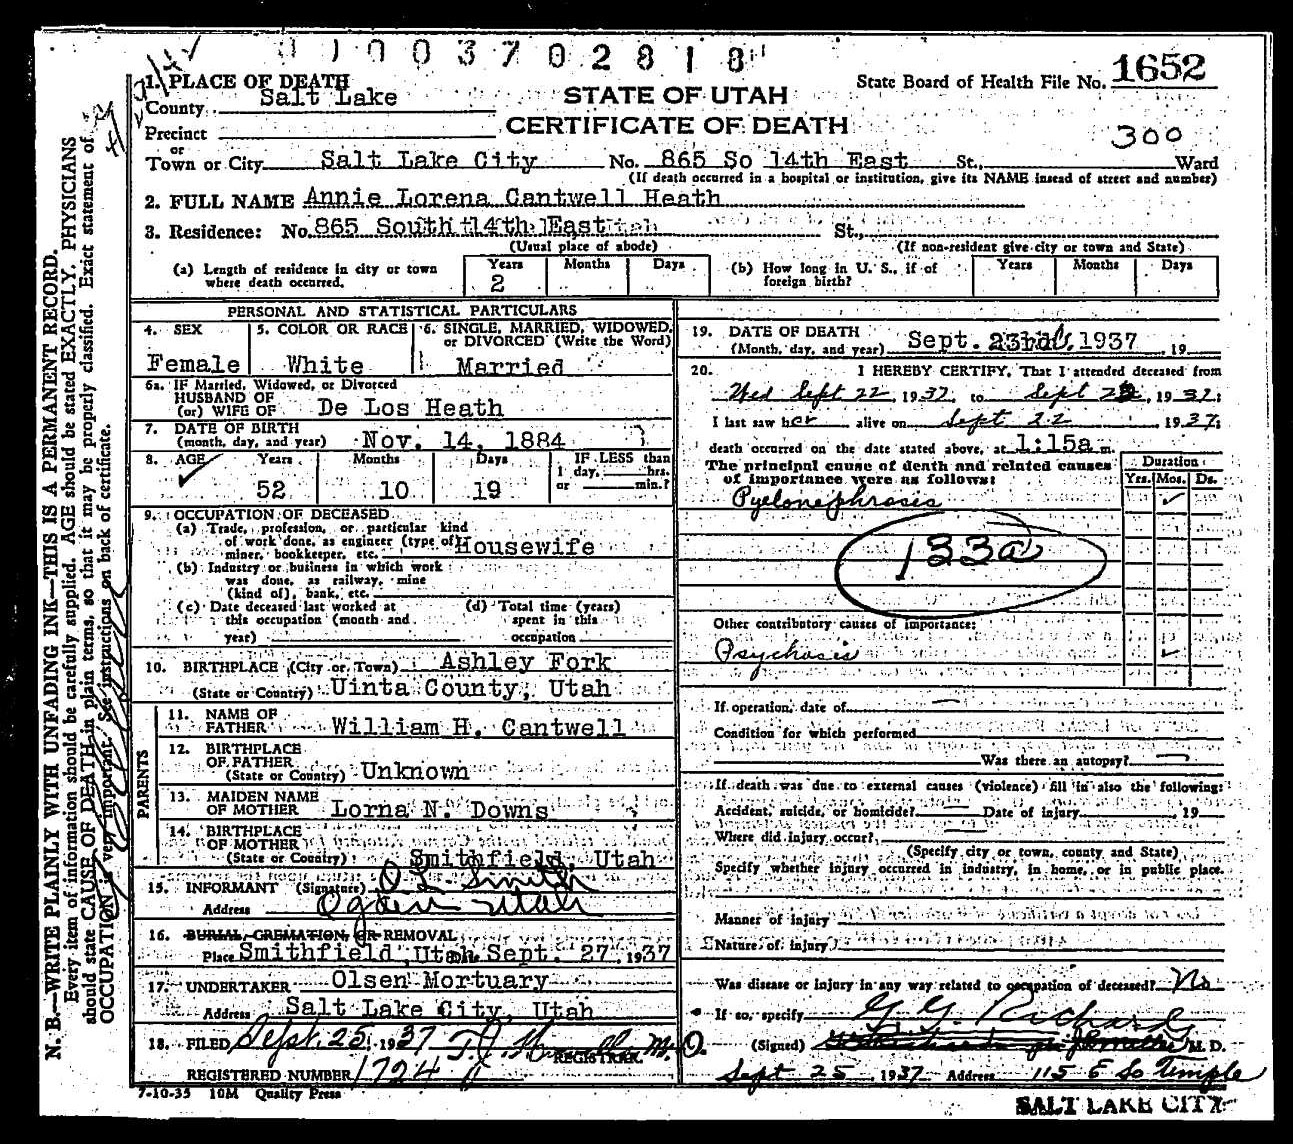 0 1 0 0 3 7 0 2 8 1 8
1652
State Board of Health File No.
1. PLACE OF DEATH
County Salt Lake
STATE OF UTAH
CERTIFICATE OF DEATH
Precinct
or
300
Town or City Salt Lake City No. 865 So 14th East St., Ward
(If death occurred in a hospital or institution, give its NAME instead of street and number)
2. FULL NAME Annie Lorena Cantwell Heath
3. Residence: No. 865 South 14th East St.,
(Usual place of abode) (If non-resident give city or town and State)
(a) Length of residence in city or town where death occurred. Years 2 Months Days
(b) How long in U. S., if of foreign birth? Years Months Days
PERSONAL AND STATISTICAL PARTICULARS
4. SEX Female
5. COLOR OR RACE White
6. SINGLE, MARRIED, WIDOWED, or DIVORCED (Write the Word) Married
6a. IF Married, Widowed, or Divorced
HUSBAND OF
(or) WIFE OF De Los Heath
7. DATE OF BIRTH
(month, day, and year) Nov. 14, 1884
8. AGE Years 52 Months 10 Days 19
IF LESS than
1 day, hrs.
or min.?
9. OCCUPATION OF DECEASED
(a) Trade, profession, or particular kind
of work done, as engineer (type of)
miner, bookkeeper, etc. Housewife
(b) Industry or business in which work
was done, as railway, mine
(kind of), bank, etc.
(c) Date deceased last worked at
this occupation (month and
year)
(d) Total time (years)
spent in this
occupation
10. BIRTHPLACE (City or Town) Ashley Fork
(State or Country) Uinta County, Utah
PARENTS
11. NAME OF
FATHER William H. Cantwell
12. BIRTHPLACE
OF FATHER
(State or Country) Unknown
13. MAIDEN NAME
OF MOTHER Lorna N. Downs
14. BIRTHPLACE
OF MOTHER
(State or Country) Smithfield, Utah
15. INFORMANT (Signature) O L Smith
Address Ogden Utah
16. BURIAL, CREMATION, OR REMOVAL
Place Smithfield, Utah Sept. 27, 1937
17. UNDERTAKER Olsen Mortuary
Address Salt Lake City, Utah
18. FILED Sept. 25, 1937 M. D.
REGISTRAR
REGISTERED NUMBER 1724
7-10-35 10M Quality Press
19. DATE OF DEATH
(Month, day, and year) Sept. 23rd, 1937, 19
20. I HEREBY CERTIFY, That I attended deceased from
Wed Sept 22, 1937, to Sept 22, 1937;
I last saw her alive on Sept 22, 1937;
death occurred on the date stated above, at 1:15a m.
The principal cause of death and related causes
of importance were as follows:
Duration
Yrs. Mos. Ds.
Pyelonephrosis
133a
Other contributory causes of importance:
Psychosis
If operation, date of
Condition for which performed
Was there an autopsy?
If death was due to external causes (violence) fill in also the following:
Accident, suicide, or homicide? Date of injury 19
Where did injury occur?
(Specify city or town, county and State)
Specify whether injury occurred in industry, in home, or in public place.
Manner of injury
Nature of injury
Was disease or injury in any way related to occupation of deceased? No
If so, specify G. G. Richards
(Signed) M. D.
Sept 25, 1937 Address 115 E So Temple
SALT LAKE CITY
N. B.—WRITE PLAINLY WITH UNFADING INK—THIS IS A PERMANENT RECORD.
Every item of information should be carefully supplied. AGE should be stated EXACTLY. PHYSICIANS
should state CAUSE OF DEATH in plain terms, so that it may be properly classified. Exact statement of
OCCUPATION is very important. See instructions on back of certificate.